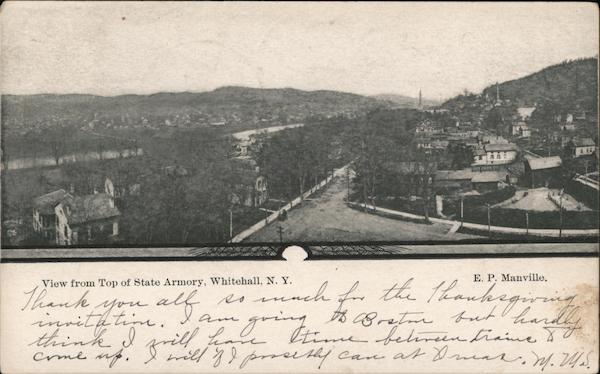 View from Top of State Armory, Whitehall, N. Y.
E. P. Manville.
Thank you all so much for the Thanksgiving
invitation. I am going to Boston but hardly
think I will have time between trains to
come up. I will if I possibly can at Xmas. M. M. S.